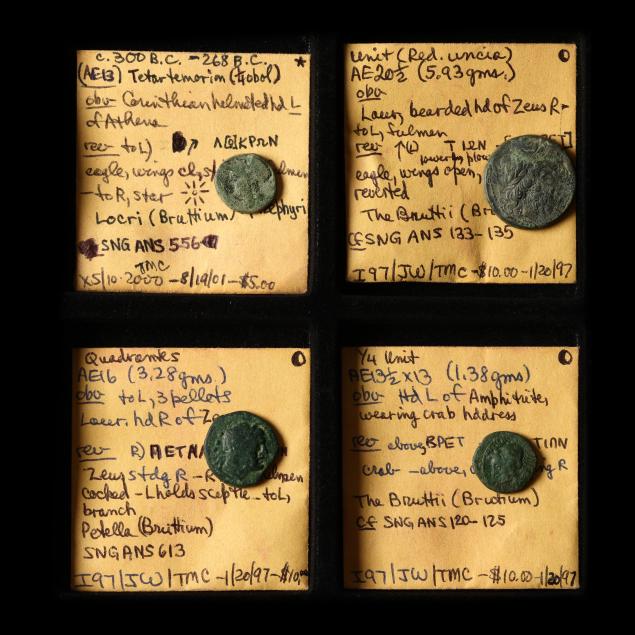 c. 300 B.C. - 268 B.C. *
(AE13) Tetartemorion (¼obol)
obv Corinthian helmeted hd L
of Athena
rev to L)
eagle, wings cl,
- to R, star
Locri (Bruttium)
SNG ANS 556
TMC
X5/10·2000 - 8/19/01 - $5.00
unit (Red. uncia)
AE20½ (5.93gms.)
obv
Laur, bearded hd of Zeus R-
to L, fulmen
rev
eagle, wings open,
reverted
The Bruttii
cf SNG ANS 133-135
I97/JW/TMC - $10.00 - 1/20/97
Quadrantes
AE16 (3.28gms.)
obv to L, 3 pellets
Laur. hd R of
rev R) ΠETH
Zeus stdg R -
cocked - L holds sceptre - to L,
branch
Petelia (Bruttium)
SNG ANS 613
I97/JW/TMC - 1/20/97 - $10.00
¼ Unit
AE13½x13 (1.38gms)
obv Hd L of Amphitrite,
wearing crab hddress
rev above, BPET TIΩN
crab - above,
The Bruttii (Bruttium)
cf SNG ANS 120-125
I97/JW/TMC - $10.00 - 1/20/97